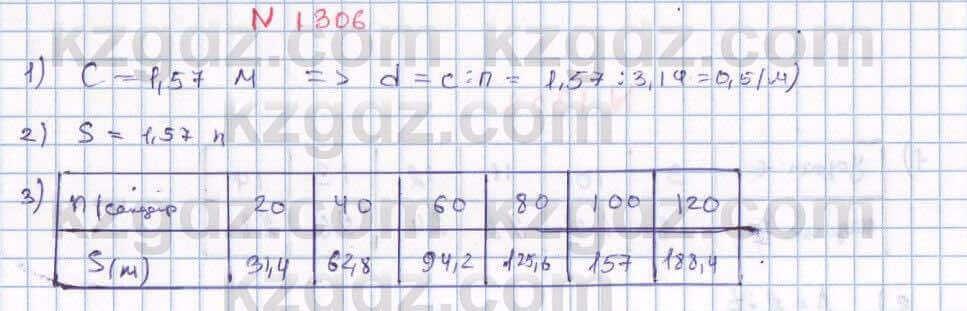 N 1306
1) C = 1,57 м => d = c : π = 1,57 : 3,14 = 0,5 (м)
2) S = 1,57 n
3) n 20 40 60 80 100 120
S(m) 31,4 62,8 94,2 125,6 157 188,4
kzgdz.com kzgdz.com
kzgdz.com kzgdz.com
kzgdz.com kzgdz.com